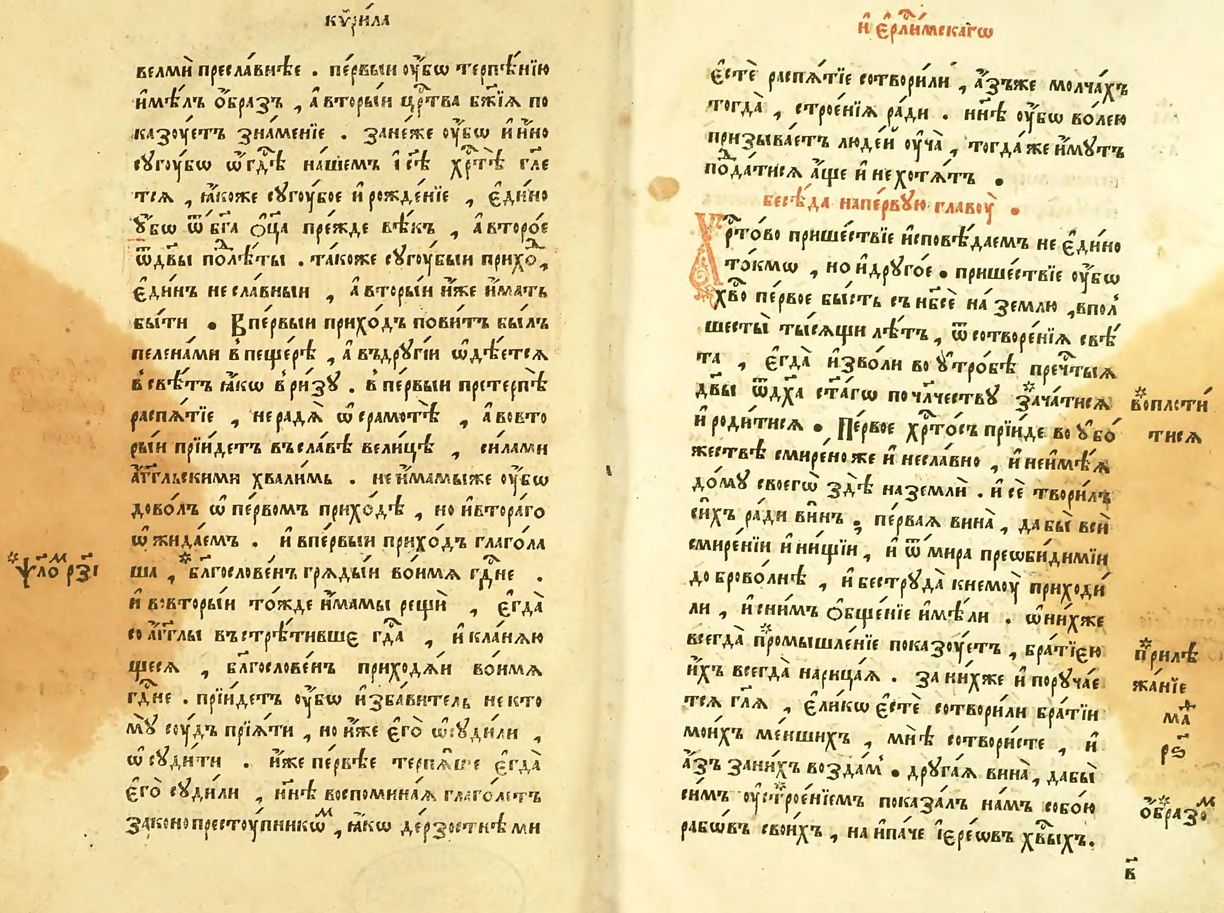 кѷри́ла
велмѝ пресла́внѣе . пе́рвыи оу҆́бѡ терпѣ́нїю
и҆мѣ́лъ ѻ҆́бразъ , а҆ вторы́и црⷭ҇тва бж҃їѧ по
казоу́етъ зна́менїе . зане́же оу҆́бѡ и҆ и҆́но
сугоу́бѡ ѡ҆ гдⷭ҇ѣ нашемъ і҆с҃ѣ хрⷭ҇тѣ̀ гл҃е
тсѧ , ꙗ҆́коже сугоу́бое и҆ рожде́нїе , є҆ди́но
у҆́бѡ ѿ бг҃а ѻ҆ц҃а пре́жде вѣ́къ , а҆ второ́е
ѿ дв҃ы полѣ́ты . та́коже сугоу́быи прихоⷣ ,
є҆ди́нъ не сла́вныи , а҆ вторы́и и҆́же и҆́мать
бы́ти . В пе́рвыи прихо́дъ пови́тъ бы́лъ
пелена́ми в пеще́рѣ , а҆ въ другі́и ѡ҆дѣ́ется
в свѣ́тъ ꙗ҆́кѡ в ри́зу . в пе́рвыи претерпѣ̀
распѧ́тїе , не радѧ̀ ѡ҆ срамотѣ̀ , а҆ во вто
ры́и прїи́детъ въ сла́вѣ вели́цѣ , си́лами
а҆́гг҃льскими хвали́мь . не и҆́мамы же оу҆́бѡ
дово́лъ ѡ҆ пе́рвомъ прихо́дѣ , но и҆ втора́го
ѡ҆жида́емъ . и҆ в пе́рвыи прихо́дъ глаго́ла
ша , * блг҃ослове́нъ грѧды́и во и҆́мѧ гдⷭ҇не .
и҆ во вторы́и то́жде и҆́мамы рещѝ , є҆гда̀
со а҆́гг҃лы въстрѣ́тивше гдⷭ҇а , и҆ кла́нѧю
щесѧ , блг҃ослове́нъ приходѧ́и во и҆́мѧ
гдⷭ҇не . прїи́детъ оу҆́бѡ и҆зба́витель не к то
мꙋ̀ соу́дъ прїѧ́ти , но и҆́же є҆го̀ ѡ҆суди́ли ,
ѡ҆суди́ти . и҆́же пе́рвѣе терпѧ́ше є҆гда̀
є҆го̀ суди́ли , нн҃ѣ воспомина́ѧ глаго́летъ
законопрестоу́пникѡⷨ , ꙗ҆́кѡ де́рзостнѣ ми
* ѱало́ⷨ рз҃і
и҆ є҆рⷭ҇ли́мскагѡ
є҆стѐ распѧ́тїе сотвори́ли , а҆́зъ же молча́хъ
тогда̀ , строе́нїѧ ра́ди . нн҃ѣ оу҆́бѡ во́лею
призыва́етъ люде́й оу҆ча̀ , тогда́ же и҆́мутъ
пода́тисѧ а҆́ще и҆ не хотѧ́тъ .
бесѣ́да на пе́рвую главоу̀ .
Хрⷭ҇то́во прише́ствїе и҆сповѣ́даемъ не є҆ди́но
то́кмѡ , но и҆ друго́е . прише́ствїе оу҆́бѡ
хв҃о пе́рвое бы́сть съ нб҃сѐ на́ землю , в пол̾
шесты̀ ты́сѧщи лѣ́тъ , ѿ сотворе́нїѧ свѣ́
та , є҆гда̀ и҆зво́ли во у҆тро́бѣ преч҃тыѧ
дв҃ы ѿ дх҃а ст҃а́гѡ по чл҃честву * зача́тисѧ
и҆ роди́тисѧ . Пе́рвое хрⷭ҇то́съ прїи́де во у҆бо́
жествѣ смире́но же и҆ несла́вно , и҆ не и҆мѣ́ѧ
до́му своегѡ̀ здѣ̀ на землѝ . и҆ сѐ твори́лъ
си́хъ ра́ди ви́нъ , пе́рваѧ вина̀ , да бы̀ всѝ
смире́нїи и҆ ни́щїи , и҆ ѿ мира преѡби́димїи
доброво́лнѣ , и҆ без труда̀ к немоу̀ приходи́
ли , и҆ с ни́мъ ѻ҆бще́нїе и҆мѣ́ли . ѡ҆ ни́хже
всегда̀ * промышле́нїе показоу́етъ , бра́тїею
и҆́хъ всегда̀ нарица́ѧ . за ни́хже и҆ поруча́е
тсѧ гл҃ѧ , є҆ли́кѡ є҆стѐ сотвори́ли бра́тїи
мои́хъ ме́ншихъ , мнѣ̀ сотвори́сте , и҆
а҆́зъ за ни́хъ возда́мъ . друга́ѧ вина̀ , да бы̀
си́мъ * оу҆строе́нїемъ показа́лъ на́мъ собо́ю
рабѡ́въ свои́хъ , наипа́че і҆ере́ѡвъ хв҃ыхъ .
* воплоти́
тисѧ
* прилѣ
жа́нїе
маⷴ
рѕ҃
* ѻ҆́бразоⷨ
в҃